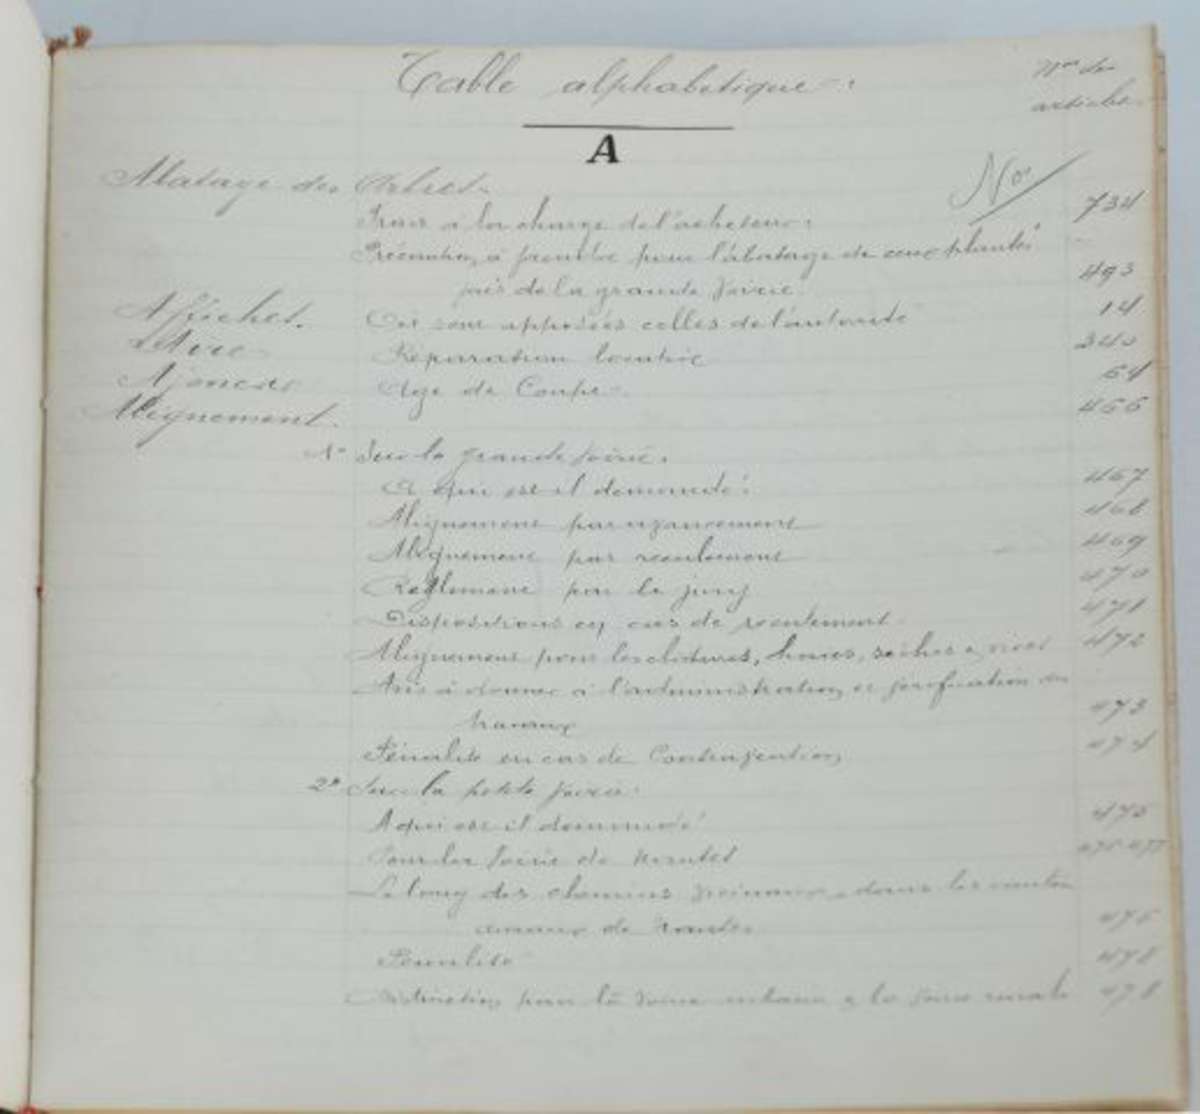 Table alphabétique
Nos des
articles
A
Abatage des Arbres
Nos
Frais à la charge de l'acheteur 734
Précaution à prendre pour l'abatage de ceux plantés
près de la grande voirie 493
Affiches. Où sont apposées celles de l'autorité 14
Réparation locative 340
Ajoncs Age de Coupe 64
Alignement. 466
1º Sur la grande voirie.
A qui est il demandé? 467
Alignement par avancement 468
Alignement par reculement 469
Règlement par le jury 470
Dispositions en cas de reculement 471
Alignement pour les clôtures, haies, sèches & vives 472
Avis à donner à l'administration et vérification des
travaux 473
Pénalité en cas de Contravention 474
2º Sur la petite voirie.
A qui est il demandé? 475
Pour la voirie de Nantes
Le long des chemins vicinaux dans les
de Nantes 476
Pénalité 478
Distinction pour la voirie urbaine & la voirie rurale 478